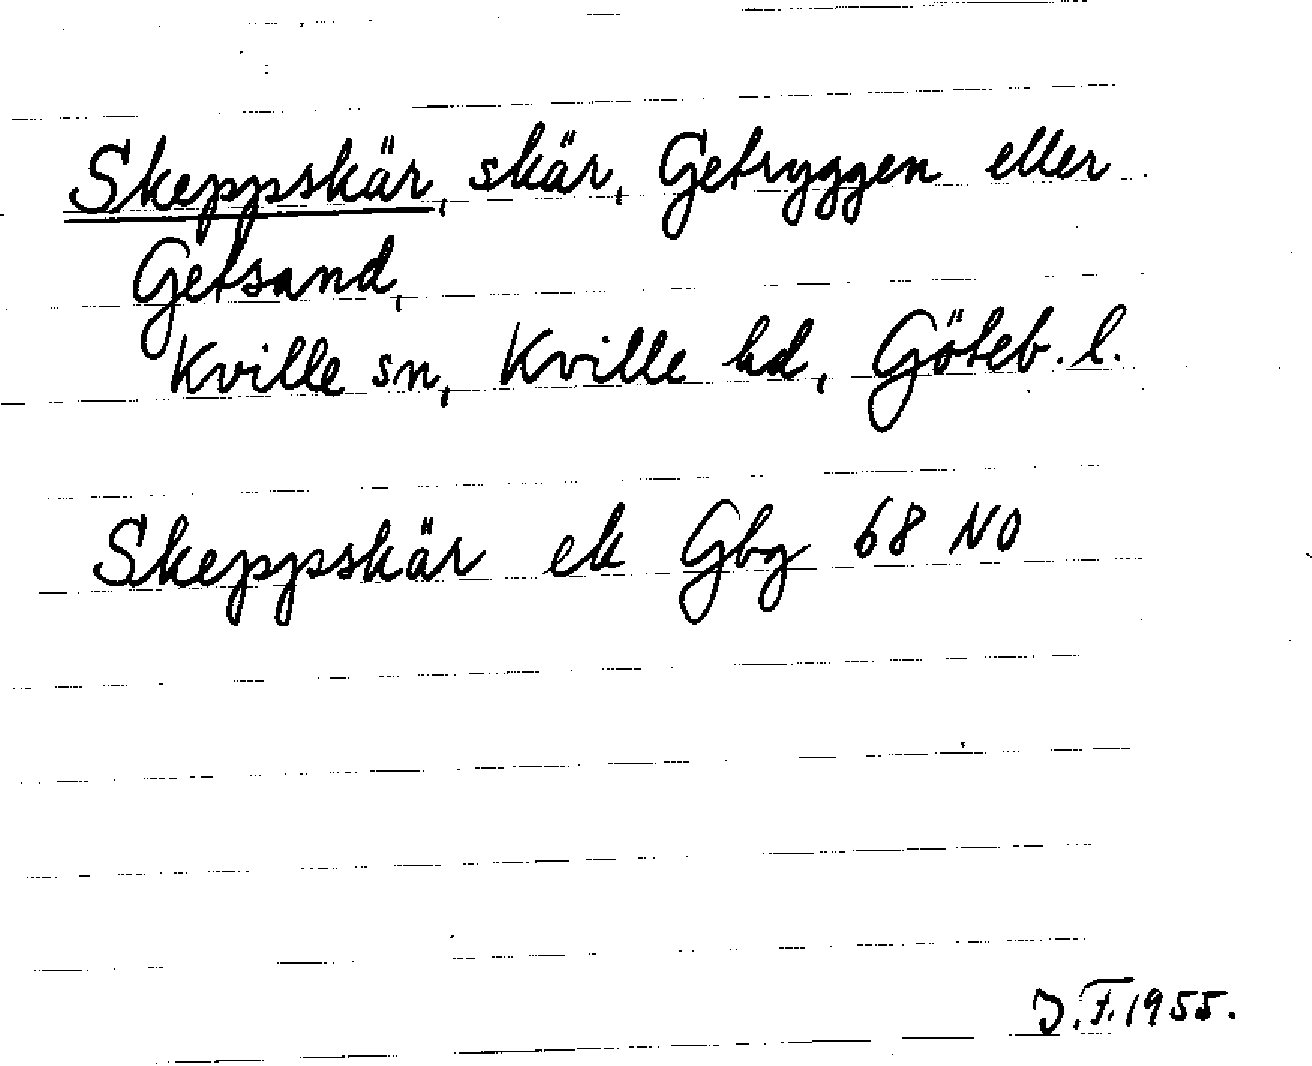 Skeppskär, skär, Getryggen eller
Getsand,
Kville sn, Kville hd, Göteb. l.
Skeppskär ek Gbg 68 NO
J.F. 1955.